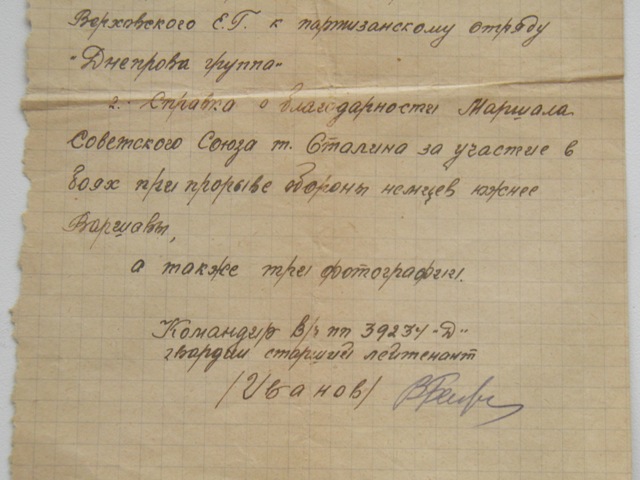 Верховского Е.Г. к партизанскому отряду
"Днепрова группа"
2. Справка о благодарности Маршала
Советского Союза т. Сталина за участие в
боях при прорыве обороны немцев южнее
Варшавы,
а также три фотографии.
Командир В/ч пп 39234 "Д"
гвардии старший лейтенант
/Иванов/